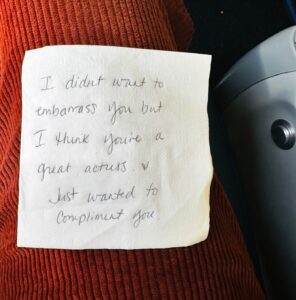 I didn't want to
embarrass you but
I think you're a
great actress. ♥
Just wanted to
compliment you